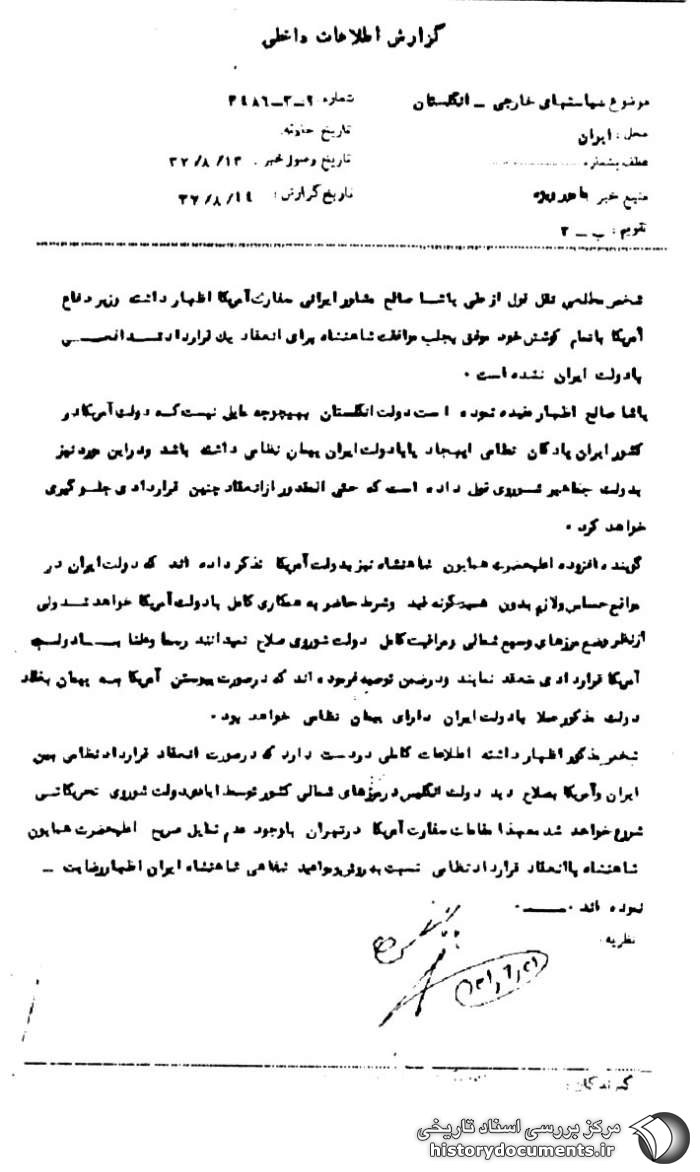 گزارش اطلاعات داخلی
موضوع سیاستهای خارجی ـ انگلستان
شماره ۲ـ۳ـ۳۴۸۶
محل : ایران
تاریخ حادثه:
عطف بشماره
تاریخ وصول خبر . ۳۷/۸/۱۳
منبع خبر مامور ویژه
تاریخ گزارش : ۳۷/۸/۱٤
تقویم : ب ـ ۲
شخص مطلعی نقل قول از علی پاشا صالح مشاور ایرانی سفارت آمریکا اظهار داشته وزیر دفاع
آمریکا باتمام کوشش خود موفق بجلب موافقت شاهنشاه برای انعقاد یك قرارداد تدافعـــی
بادولت ایران نشده است .
پاشا صالح اظهار عقیده نموده است دولت انگلستان بهیچوجه مایل نیست که دولت آمریکا در
کشور ایران پادگان نظامی ایجاد یا بادولت ایران پیمان نظامی داشته باشد و دراین مورد نیز
بدولت جماهیر شوروی قول داده است که حتی المقدور از انعقاد چنین قراردادی جلوگیری
خواهد کرد .
گوینده افزوده اعلیحضرت همایون شاهنشاه نیز بدولت آمریکا تذکر داده اند که دولت ایران در
مواقع حساس ولازم بدون هیچگونه قید وشرط حاضر به همکاری کامل بادولت آمریکا خواهد شد ولی
ازنظر وضع مرزهای وسیع شمالی ومراقبت کامل دولت شوروی صلاح نمیدانند رسما وعلنا بـــادولت
آمریکا قراردادی منعقد نمایند ودرضمن توصیه فرموده اند که درصورت پیوستن آمریکا بـه پیمان بغداد
دولت مذکور عملا بادولت ایران دارای پیمان نظامی خواهد بود .
شخص مذکور اظهار داشته اطلاعات کاملی دردست دارد که درصورت انعقاد قرارداد نظامی بین
ایران وآمریکا بصلاح دید دولت انگلیس درمرزهای شمالی کشور توسط ایادی دولت شوروی تحریکاتـی
شروع خواهد شد معهذا مقامات سفارت آمریکا درتهران باوجود عدم تمایل صریح اعلیحضرت همایون
شاهنشاه باانعقاد قرارداد نظامی نسبت به روش ومواعید شفاهی شاهنشاه ایران اظهار رضایت ـ
نموده اند .
نظریه :
گیرندگان :
مرکز بررسی اسناد تاریخی
historydocuments.ir